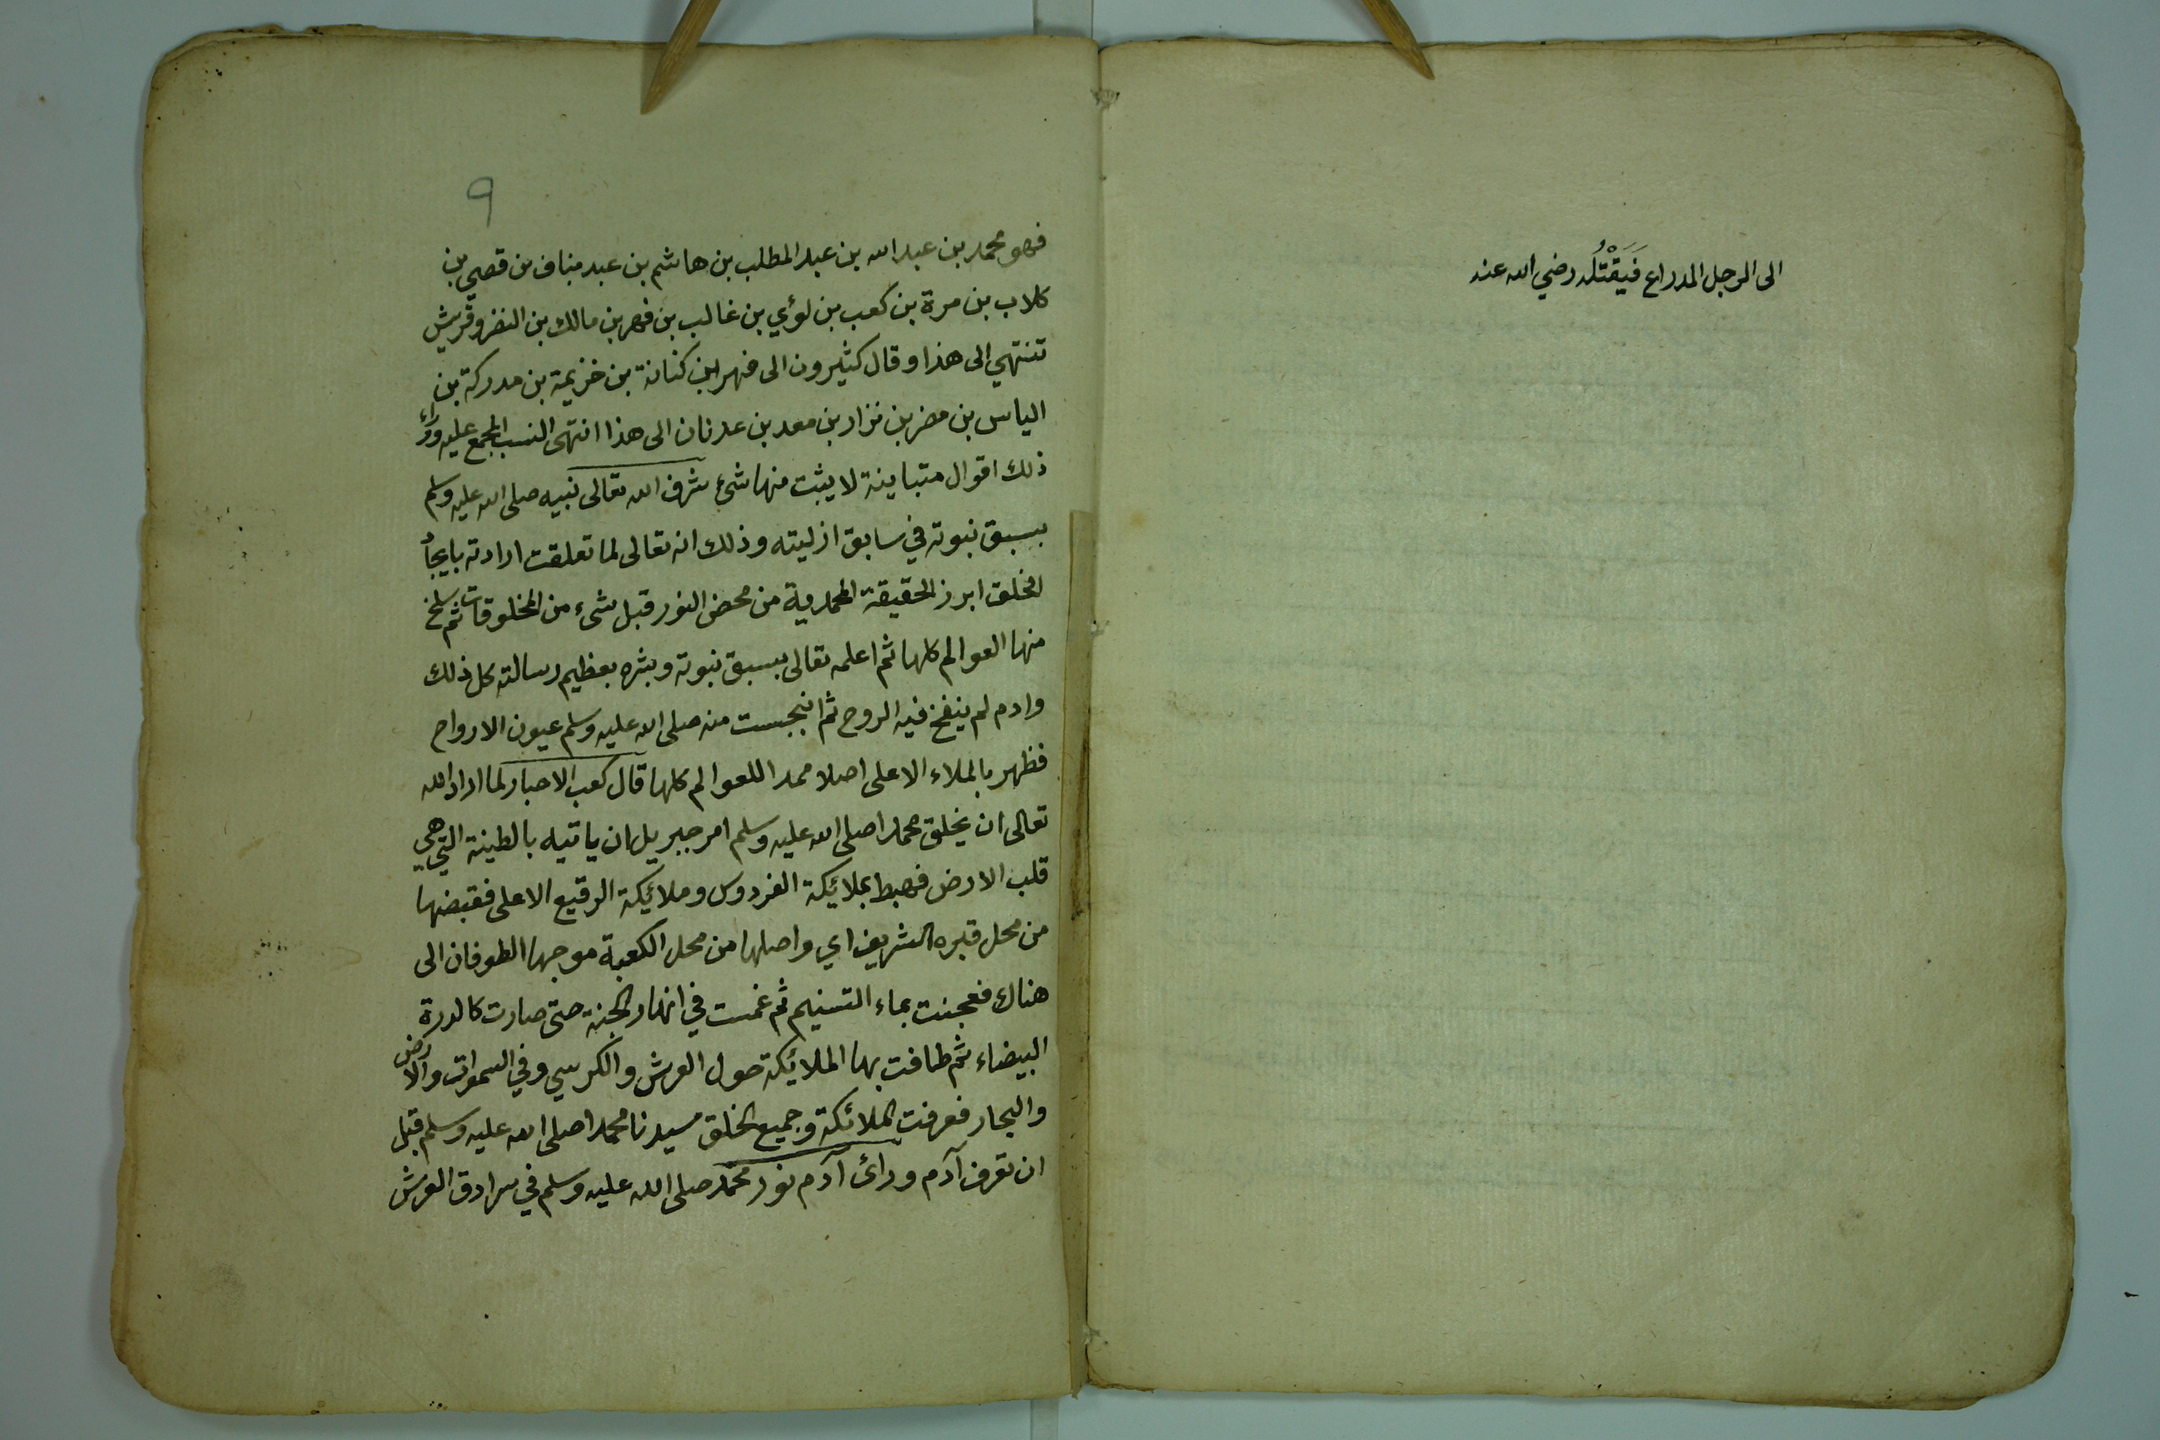 الى الرجل المدراع فَيَقْتُلُه رضي الله عنه
٩
فهو محمد بن عبد الله بن عبد المطلب بن هاشم بن عبد مناف بن قصي بن
كلاب بن مرة بن كعب بن لؤي بن غالب بن فهر بن مالك بن النضر وقريش
تنتهي الى هذا وقال كثيرون الى فهر ابن كنانة بن خزيمة بن مدركة بن
الياس بن مضر بن نزار بن معد بن عدنان الى هذا انتهى النسب المجمع عليه وراء
ذلك اقوال متباينة لا يثبت منها شئ شرف الله تعالى نبيه صلى الله عليه وسلم
بسبق نبوته في سابق ازليته وذلك انه تعالى لما تعلقت ارادته بايجاد
الخلق ابرز الحقيقة المحمدية من محض النور قبل شيء من المخلوقات ثم سلخ
منها العوالم كلها ثم اعلمه تعالى بسبق نبوته وبشره بعظيم رسالته كل ذلك
وادم لم ينفخ فيه الروح ثم انبجست منه صلى الله عليه وسلم عيون الارواح
فظهر بالملاء الاعلى اصلا ممدا للعوالم كلها قال كعب الاحبار لما اراد الله
تعالى ان يخلق محمدا صلى الله عليه وسلم امر جبريل ان ياتيه بالطينة التي هي
قلب الارض فهبط بملائكة الفردوس وملائيكة الرقيع الاعلى فقبضها
من محل قبره الشريف اي واصلها من محل الكعبة موجها الطوفان الى
هناك فعجنت بماء التسنيم ثم غمست في انهار الجنة حتى صارت كالدرة
البيضاء ثم طافت بها الملائيكة حول العرش والكرسي وفي السموات والارض
والبحار فعرفت الملائكة وجميع الخلق سيدنا محمدا صلى الله عليه وسلم قبل
ان تعرف آدم ورائ آدم نور محمد صلى الله عليه وسلم في سرادق العرش